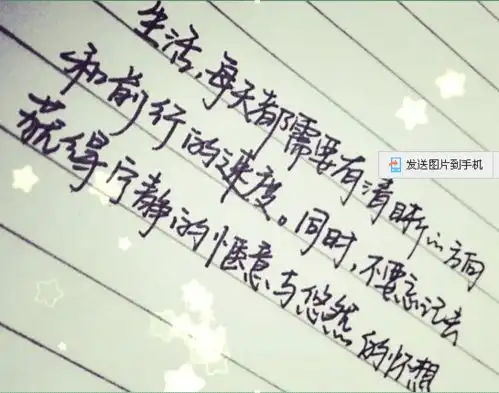 生活，每天都需要有清晰的方向
和前行的速度。同时，不要忘记去
获得宁静的惬意与悠然的怀想
发送图片到手机